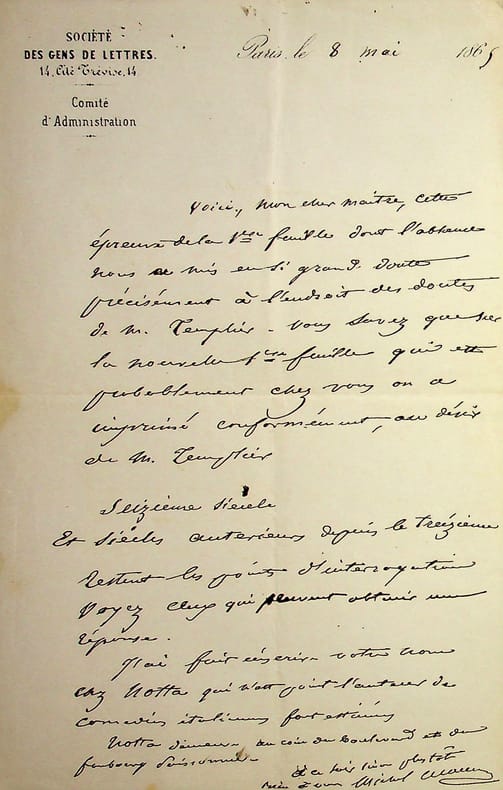 SOCIÉTÉ
DES GENS DE LETTRES.
14, Cité Trévise, 14
Comité
d'Administration
Paris, le 8 mai 1865
Voici, mon cher maître, cette
épreuve de la 1ère feuille dont l'absence
nous a mis en si grand doute
précisément à l'endroit des doutes
de M. Templier - vous savez que sur
la nouvelle 1ère feuille qui est
probablement chez vous on a
imprimé conformément, au désir
de M. Templier
Seizième siècle
Et siècles antérieurs depuis le treizième
Restent les points d'interrogation
Voyez ceux qui peuvent obtenir une
réponse.
J'ai fait inscrire votre nom
chez Notta qui n'est point l'auteur de
comédies italiennes fort estimées
Notta demeure au coin du boulevard et du
faubourg Poissonnière
à ce soir plustôt
Michel Masson